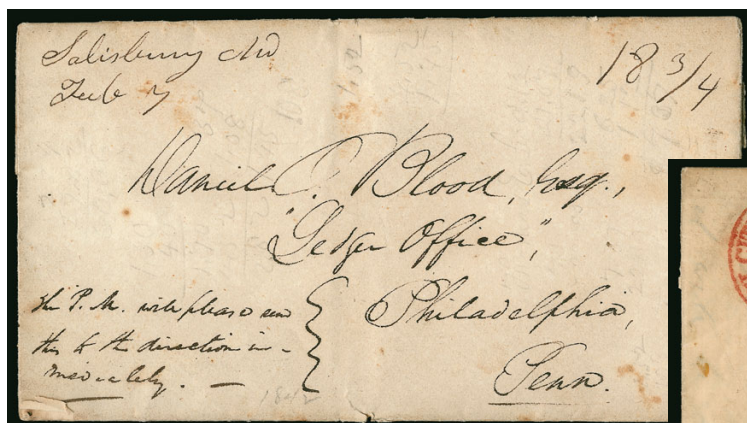 Salisbury Md
Feb 7
18 3/4
Daniel C. Blood, Esq.,
"Ledger Office",
Philadelphia,
Penn.
The P. M. will please send
this to the direction im-
mediately. —